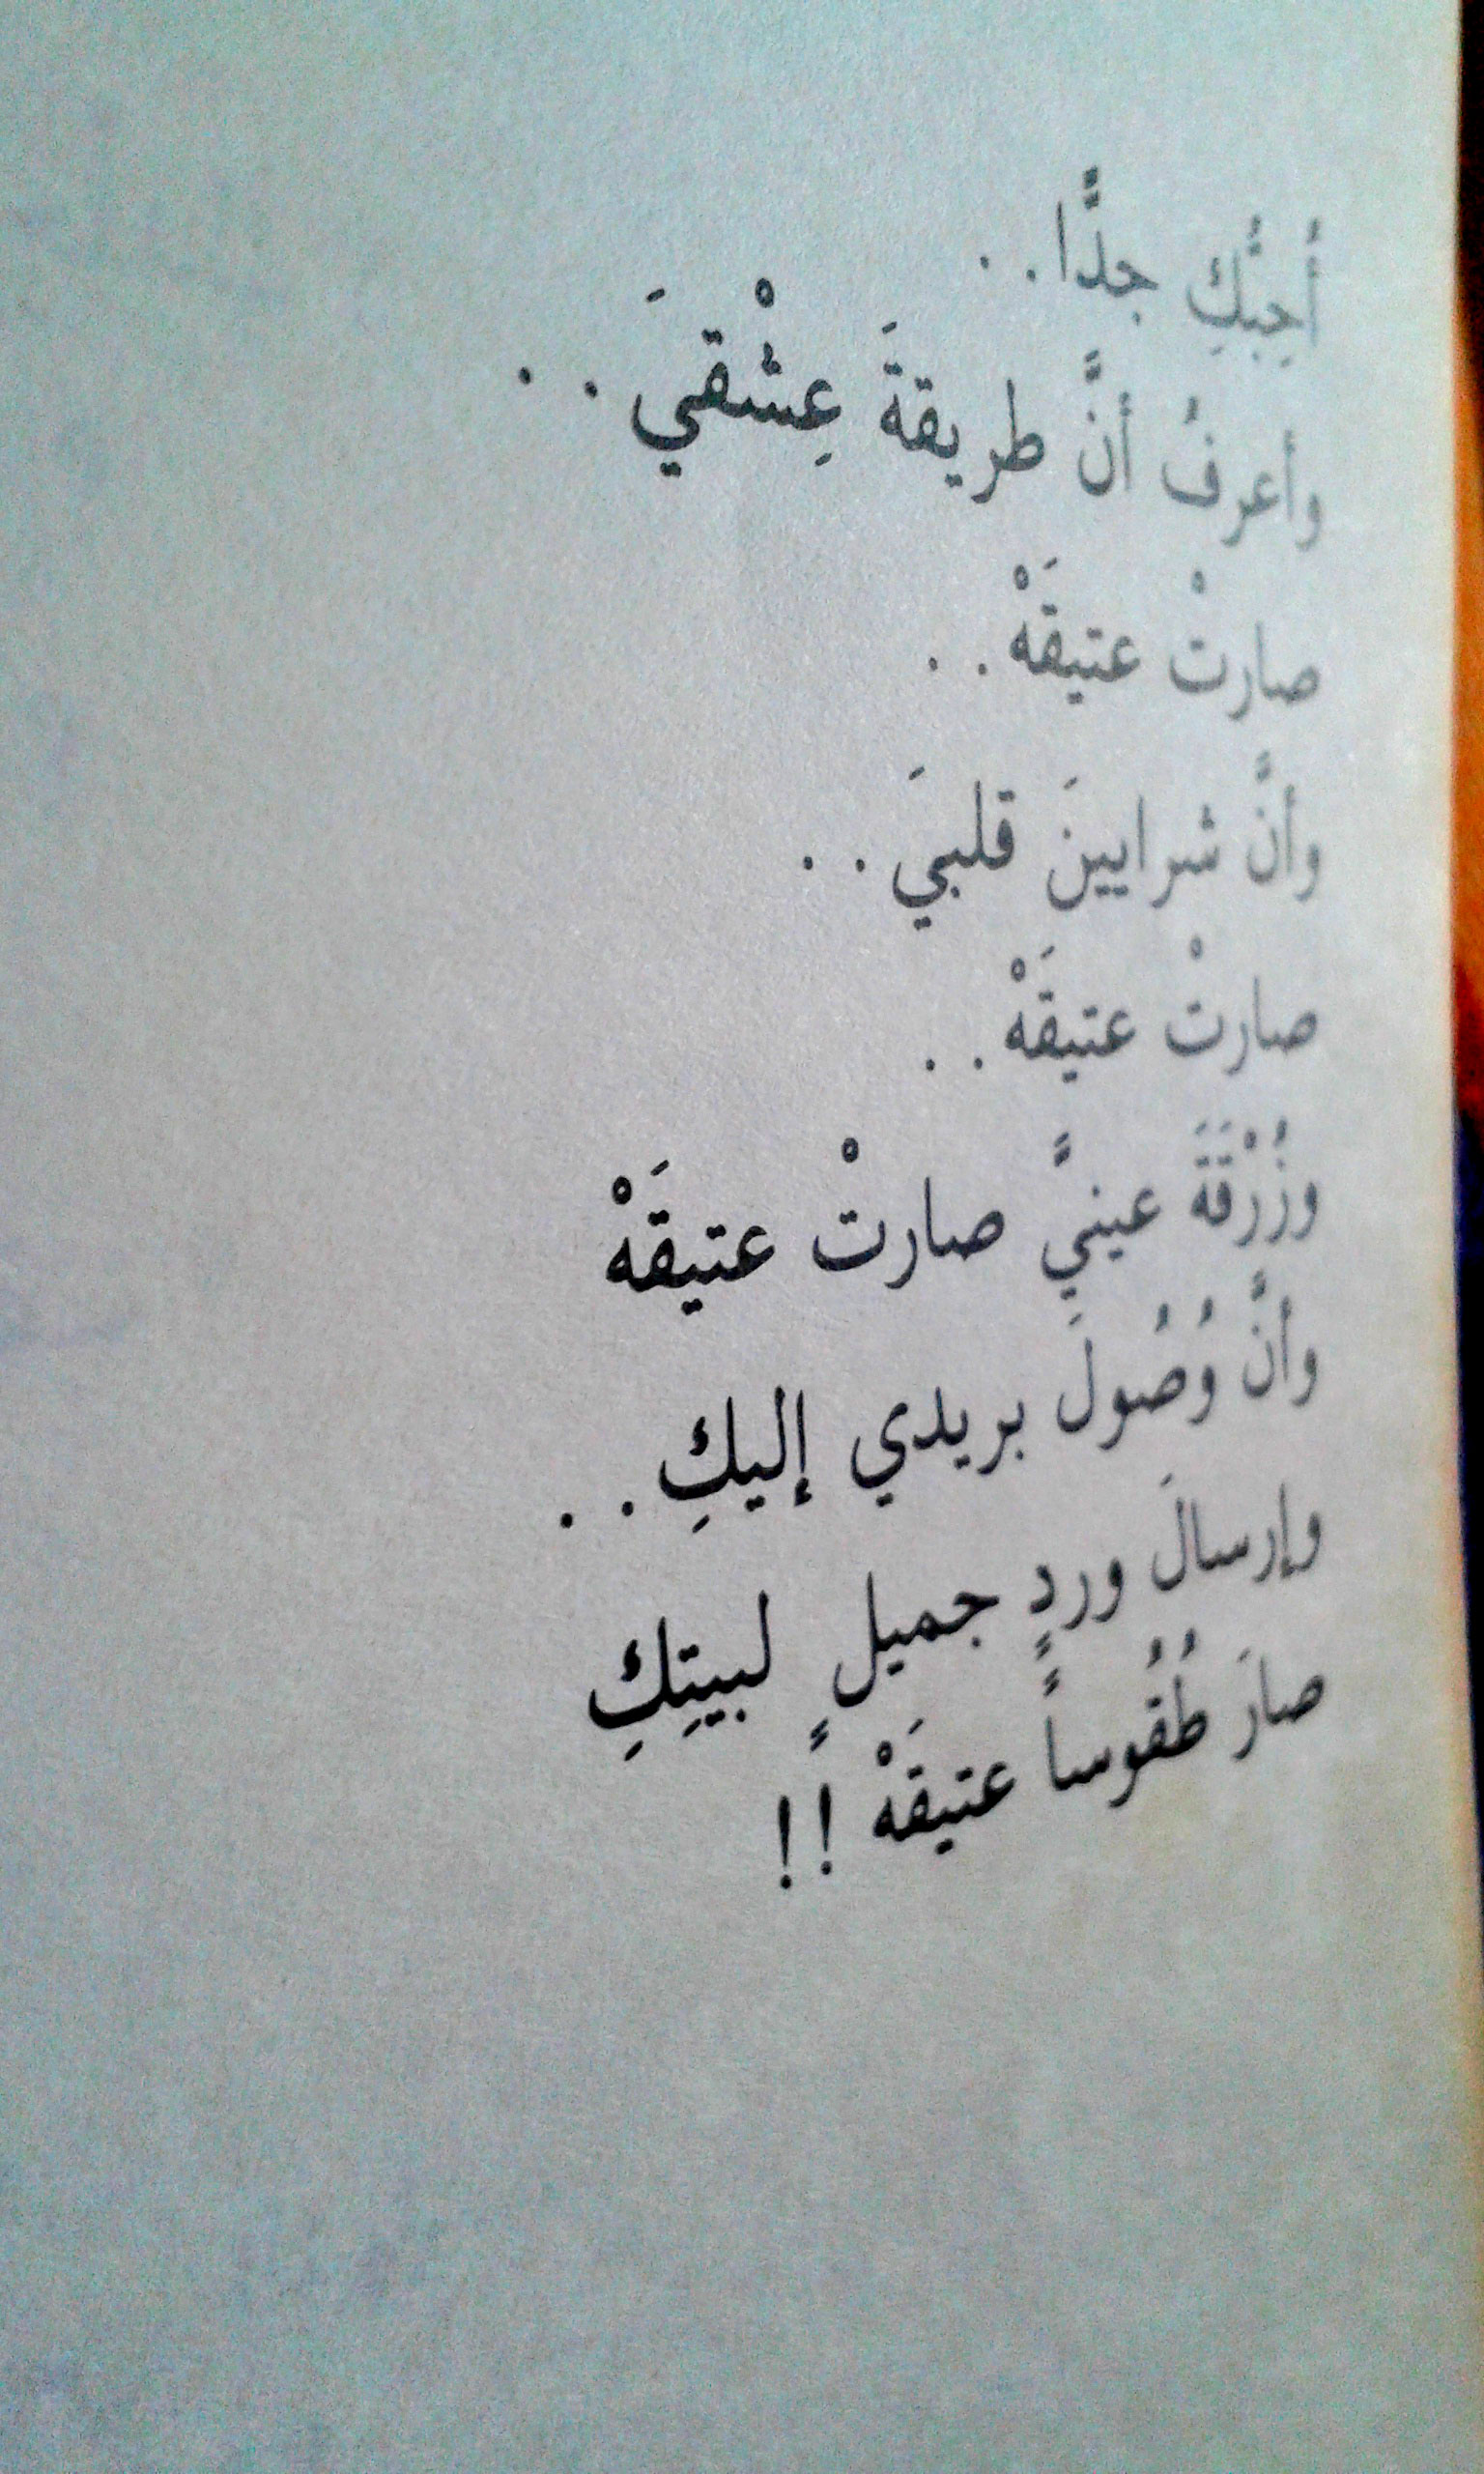 أُحِبُّكِ جدًّا . .
وأعرفُ أنَّ طريقةَ عِشْقيَ . .
صارتْ عتيقَهْ . .
وأنَّ شرايينَ قلبيَ . .
صارتْ عتيقَهْ . .
وزُرْقَةَ عينيَّ صارتْ عتيقَهْ
وأنَّ وُصُولَ بريدي إليكِ . .
وإرسالَ وردٍ جميلٍ لبيتِكِ
صارَ طُقُوساً عتيقَهْ ! !